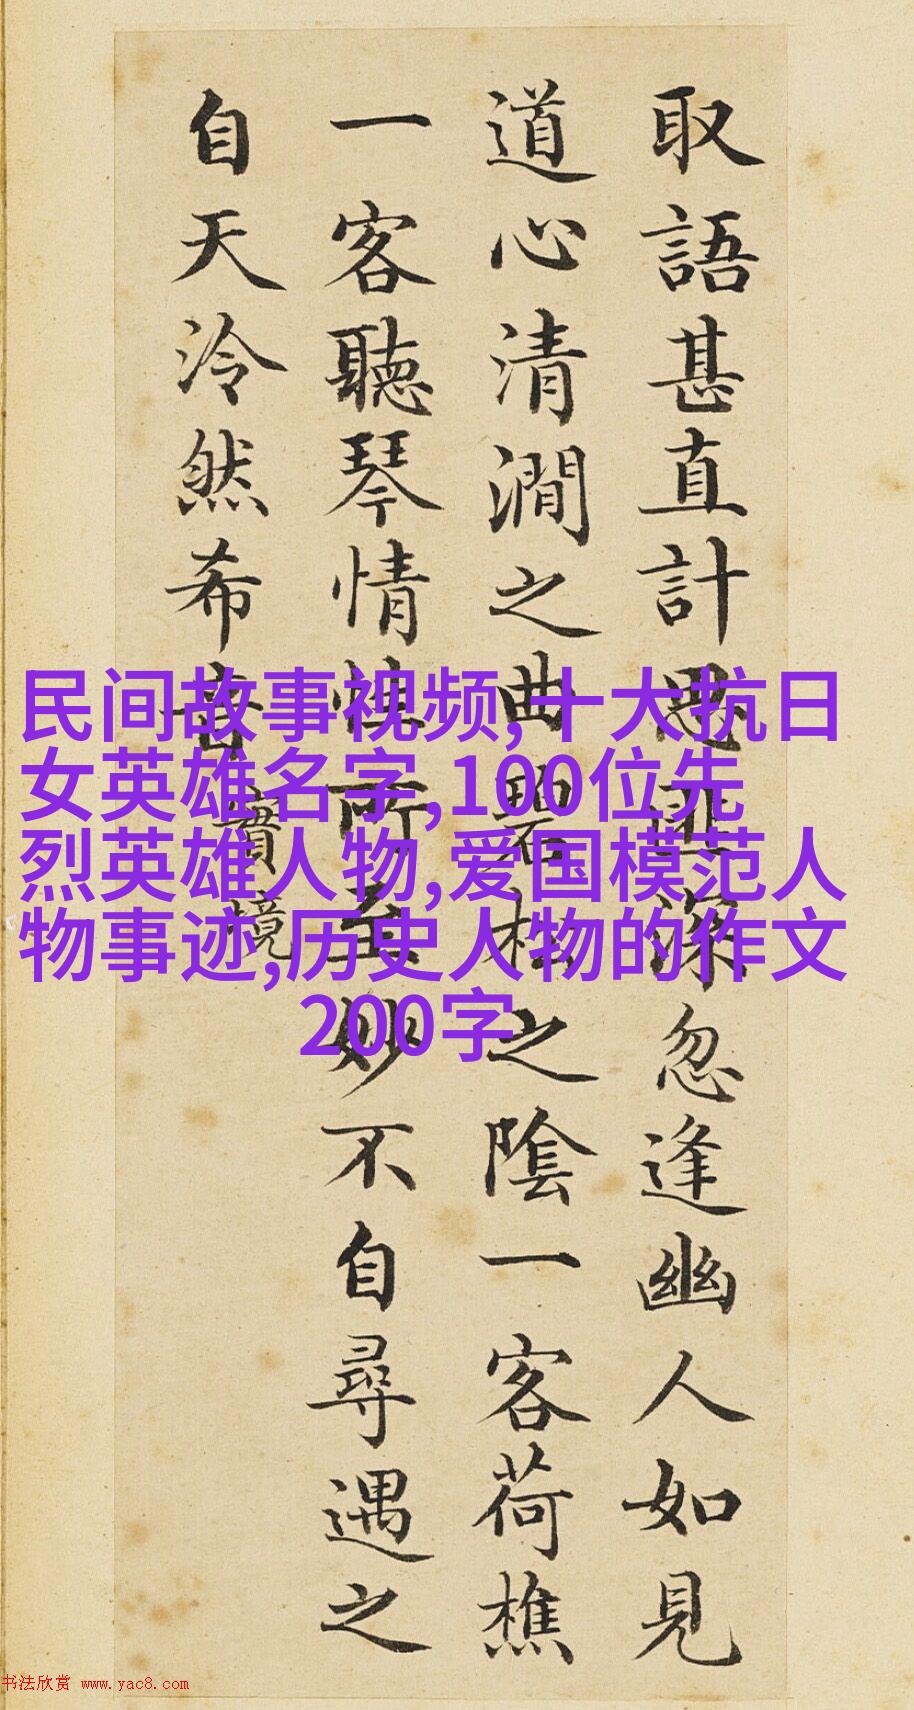 取語甚直計思匪深忽逢幽人如見
道心清澗之曲碧松之陰一客荷樵
一客聽琴情性所至妙不自尋遇之
自天泠然希音
實境
民间故事视频,十大抗日
女英雄名字,100位先
烈英雄人物,爱国模范人
物事迹,历史人物的作文
200字
书法欣赏 www.yac8.com